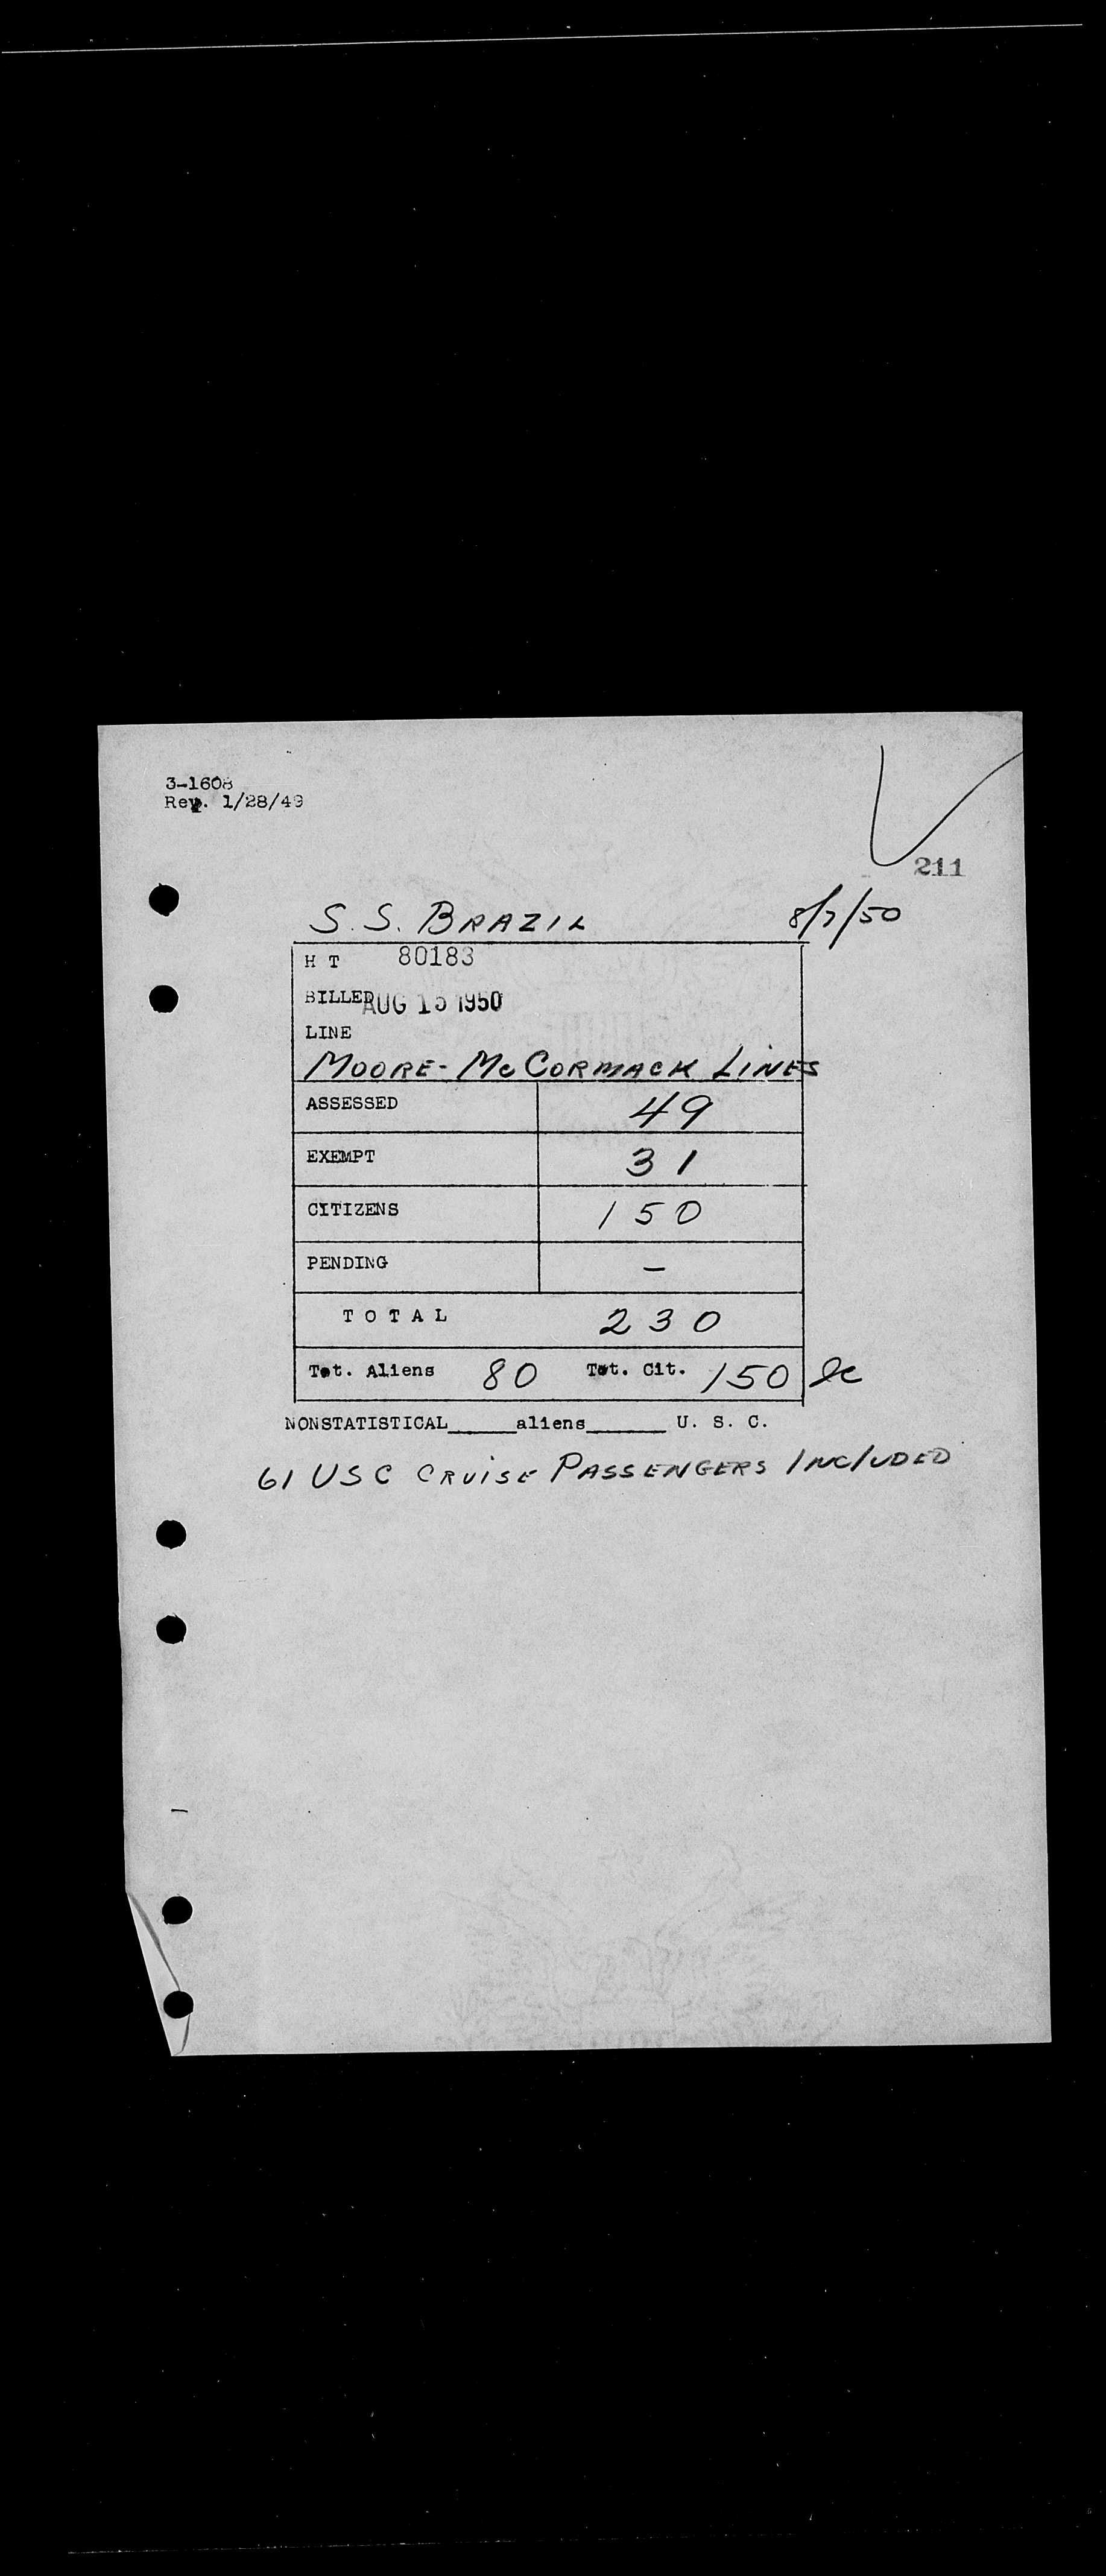 3-1608
Rev. 1/28/49
211
S. S. BRAZIL 8/7/50
H T 80183
BILLED AUG 15 1950
LINE
MOORE-McCORMACK LINES
ASSESSED 49
EXEMPT 31
CITIZENS 150
PENDING –
TOTAL 230
Tot. Aliens 80 Tot. Cit. 150
NONSTATISTICAL_____aliens______ U. S. C.
61 USC CRUISE PASSENGERS INCLUDED